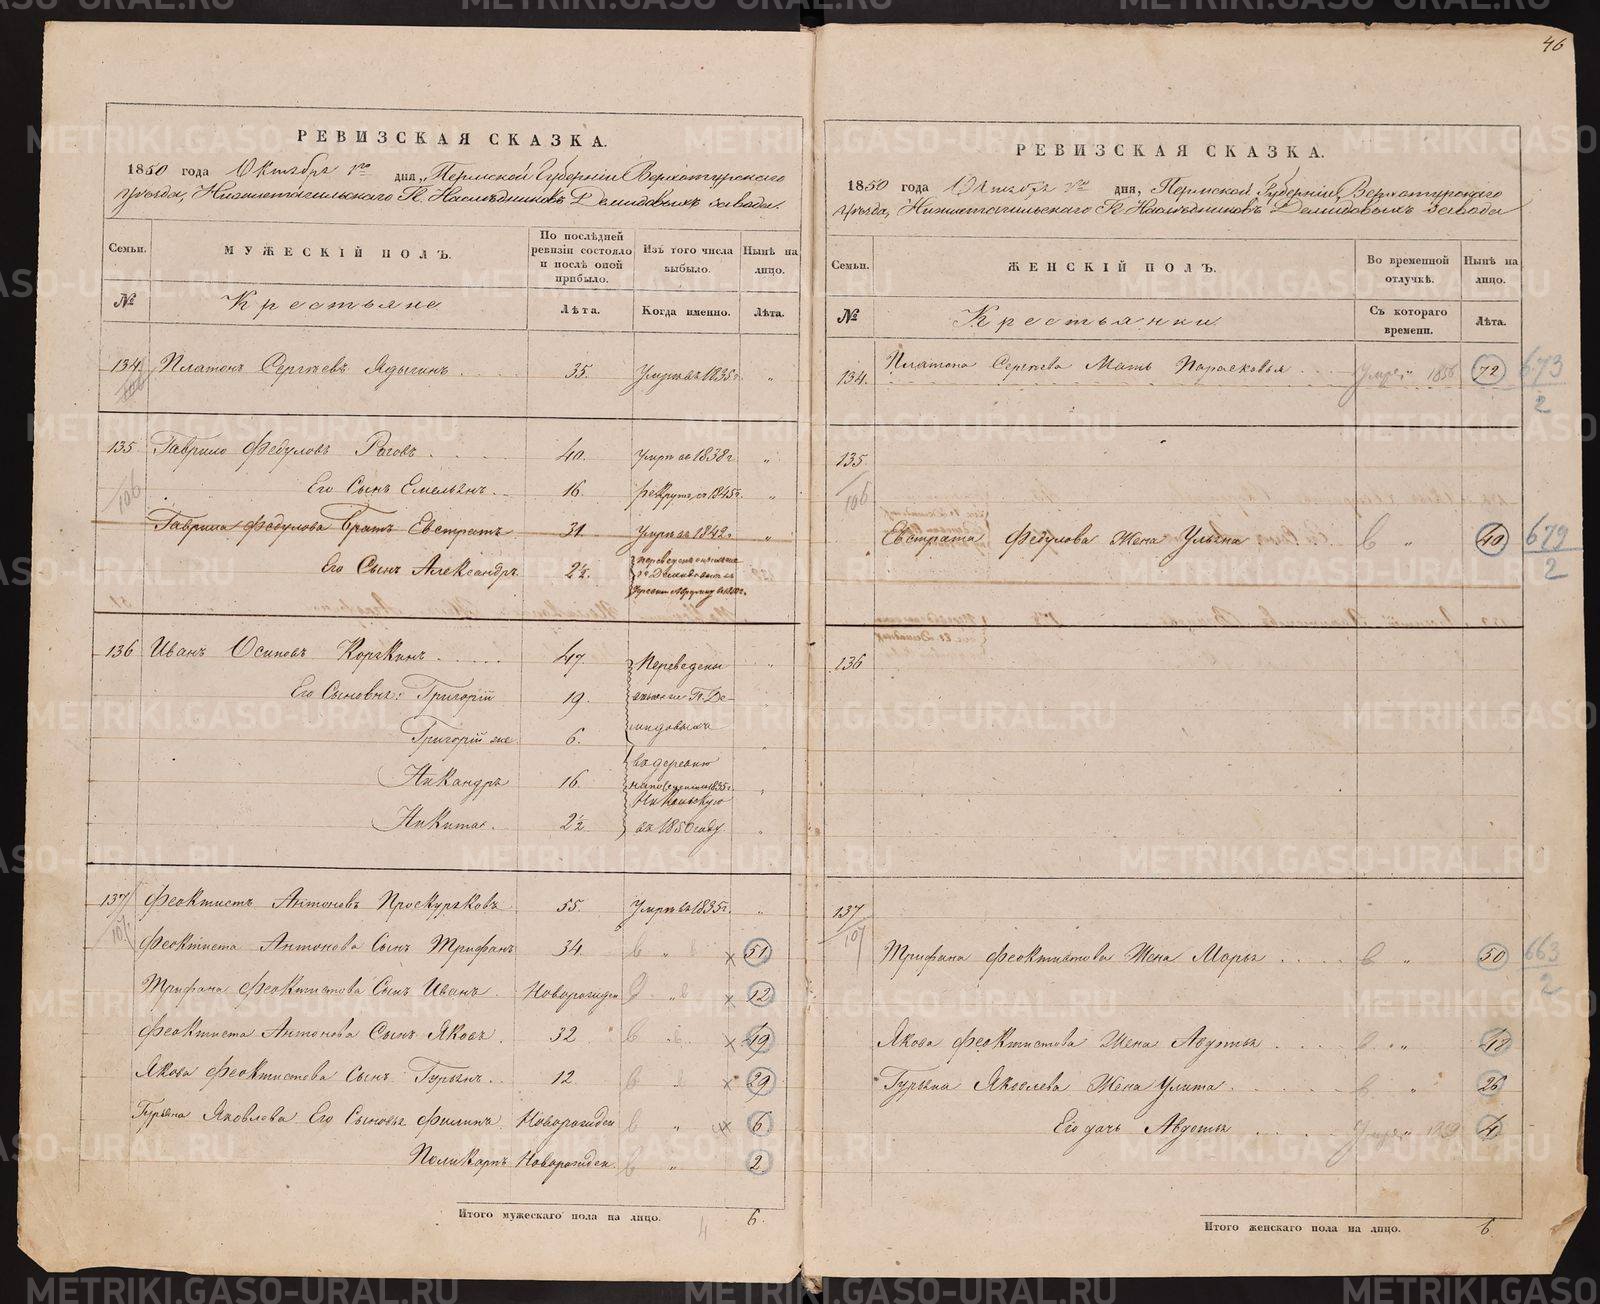 46
РЕВИЗСКАЯ СКАЗКА.
1850 года Октября 1го дня, Пермской Губерніи Верхотурскаго
Уѣзда, Нижнетагильскаго Гг. Наслѣдниковъ Демидовыхъ завода.
Семьи. МУЖЕСКІЙ ПОЛЪ. По послѣдней ревизіи состояло и послѣ оной прибыло. Изъ того числа выбыло. Нынѣ на лицо.
№ Крестьяне Лѣта. Когда именно. Лѣта.
134. Платонъ Сергѣевъ Ядыгинъ 35. Умре въ 1835г. „
135 Гаврило Федуловъ Роговъ 40. Умре въ 1838г „
106
Его Сынъ Емельянъ 16. рекрутъ въ 1845г. „
Гаврила Федулова Братъ Евстратъ 31. Умре въ 1842г. „
Его Сынъ Александръ 2½.
136 Иванъ Осиповъ Коряkинъ 47. Переведены „
Его Сыновья: Григорій 19. Гг. Де-
Григорій же 6. мидовыхъ
въ деревню
Никандръ 16. 1835г.
Никольскую
Никита 2½ въ 1850 году „
137 Феоктистъ Антоновъ Проскуряковъ 55. Умре въ 1835г. „
107
Феоктиста Антонова Сынъ Трифанъ 34. в „ в × 51
Трифана Феоктистова Сынъ Иванъ Новорожден в „ в × 12
Феоктиста Антонова Сынъ Яковъ 32 в „ в × 49
Якова Феоктистова Сынъ Гурьянъ 12. в × 29
Гурьяна Яковлева Его Сыновья Филипъ Новорожден в „ 6
Поликарпъ Новорожден. в „ 2
Итого мужескаго пола на лицо. 4 6.
РЕВИЗСКАЯ СКАЗКА.
1850 года Октября 1го дня, Пермской Губерніи, Верхотурскаго
Уѣзда, Нижнетагильскаго Гг. Наслѣдниковъ Демидовыхъ завода
Семьи. ЖЕНСКІЙ ПОЛЪ. Во временной отлучкѣ. Нынѣ на лицо.
№ Крестьянки Съ котораго времени. Лѣта.
134. Платона Сергѣева Мать Парасковья Умре „ 1856 72 673/2
135
106
Евстрата Федулова Жена Ульяна в „ 40 679/2
136
137
107
Трифана Феоктистова Жена Марья в „ 50 663/2
Якова Феоктистова Жена Авдотья в „ 48
Гурьяна Яковлева Жена Улита в „ 26
Его дочь Авдотья Умре „ 4
Итого женскаго пола на лицо. 6
METRIKI.GASO-URAL.RU